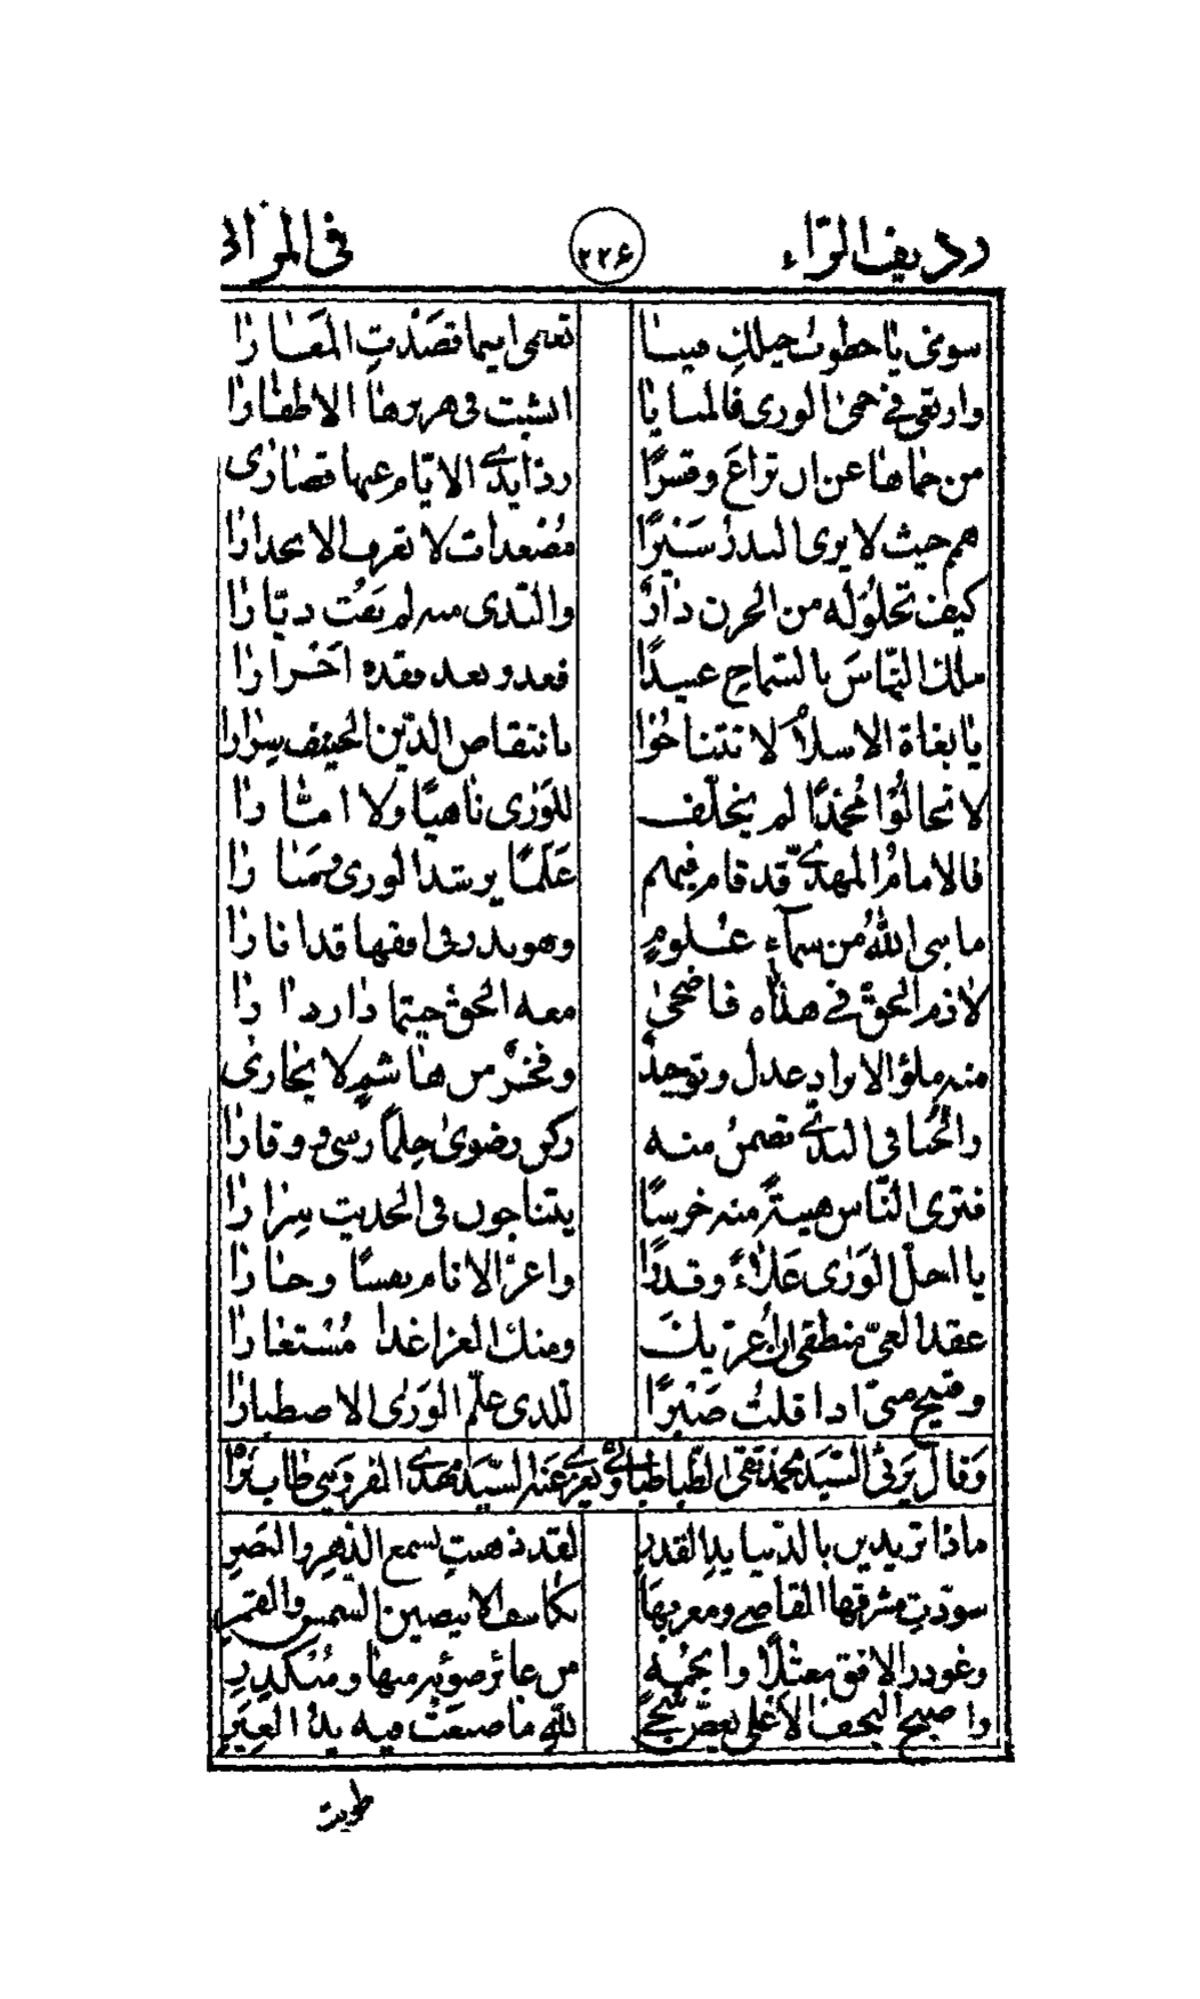 رديف الرّاء ٢٢٤ فى المراثى
سومى يا خطوب خيلك ميسا نعمى اينما قصدت المغارا
وارتقى فى حمى الورى فالمنايا انشبت فى هزبرها الاظفارا
من حماها عن ان تراع وقسرًا ردّ ايدى الايّام عنها قصارى
هم حيث لا يرى البدر سيرًا مصعدات لا تعرف الانحدارا
كيف تخلو له من الحزن دار والنّدى منه لم يفت ديّارا
ملك النّاس بالسّماح عبيدًا فغدو بعد فقده احرارا
يا بغاة الاسلام لا تتناجوا بانتقاص الدّين الحنيف سرارا
لا تخالوا محمدًا لم يخلّف للورى ناهيًا ولا امّارا
فالامام المهدىّ قد قام فيهم علمًا يرشد الورى ومنارا
ما بنى الله من سماء علوم وهو بدر فى افقها قد انارا
لازم الحقّ فى هداه فاضحى معه الحقّ حيثما دار دارا
منه ملؤ الابراد عدل وتوحيد وفخر من هاشم لا يجارى
والحبا فى النّدىّ تضمن منه ركن رضوى حلمًا رسى ووقارا
فترى النّاس هيبةً منه خرسًا يتناجون فى الحديث سرارا
يا اجلّ الورى علاءً وقدرًا واعزّ الانام نفسًا وجارا
عقد العىّ منطقى ان اعزّيك ومنك العزا غدا مستعارا
وقبيح منّى اذا قلت صبرًا للذى علّم الورى الاصطبارا
وقال يرثى السّيد محمد تقى الطّباطبائى ويعزّى عنه السّيد مهدى القزوينى طاب ثراه
ماذا تريدين بالدّنيا يد القدر لقد ذهبت بسمع الدّهر والبصر
سوّدت مشرقها القاصى ومغربها بكاسف الابيضين الشمس والقمر
وغودر الافق معتلًا وانجمه من غائر ضوئه منها ومنكدر
واصبح النجف الاعلى بغصّ شجىً للّه ما صنعت فيه يد الغير
طويت